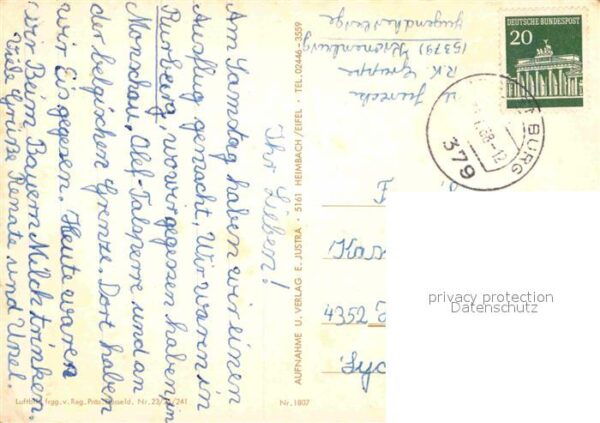 Ihr Lieben!
Am Samstag haben wir einen
Ausflug gemacht. Wir waren in
Burberg, wo wir gegessen haben, in
Monschau, Olef-Talsperre und an
der belgischen Grenze. Dort haben
wir Eis gegessen. Heute waren
wir Beim Bauern Milch trinken.
Viele Grüße Renate und Ursel.
AUFNAHME U. VERLAG E. JUSTRA · 5161 HEIMBACH/EIFEL · TEL. 02446-3559
Luftbild frgg. v. Reg. Präs. Düsseld. Nr. 23/ /241
Nr. 1807
R.K. Gruppe
(5379) Kronenburg
Jugendherberge
DEUTSCHE BUNDESPOST
20
BURG
68-12
379
F
Kas
4352
privacy protection
Datenschutz